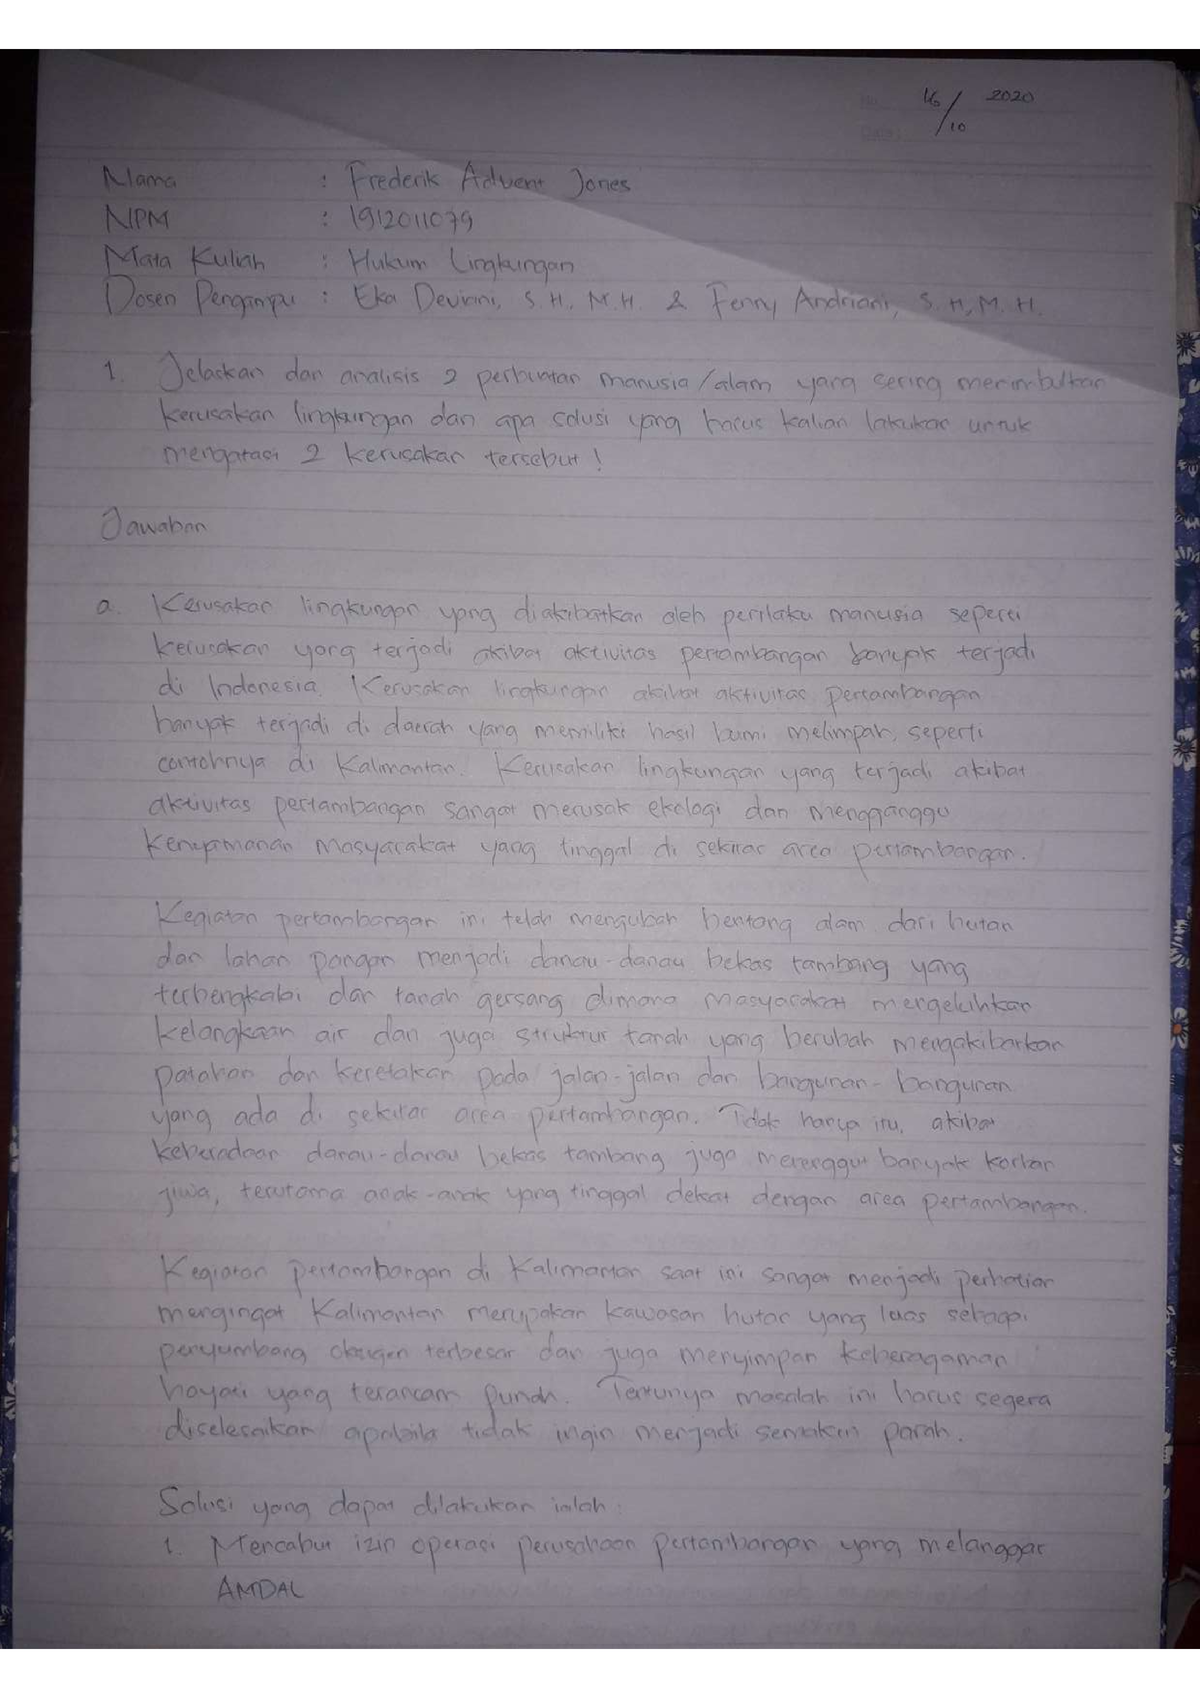 16/10 2020
Nama : Frederik Advent Jones
NPM : 1912011079
Mata Kuliah : Hukum Lingkungan
Dosen Pengampu : Eka Deviani, S.H, M.H. & Fenny Andriani, S.H, M.H.
1. Jelaskan dan analisis 2 perbuatan manusia/alam yang sering menimbulkan
kerusakan lingkungan dan apa solusi yang harus kalian lakukan untuk
mengatasi 2 kerusakan tersebut!
Jawaban
a. Kerusakan lingkungan yang diakibatkan oleh perilaku manusia seperti
kerusakan yang terjadi akibat aktivitas pertambangan banyak terjadi
di Indonesia. Kerusakan lingkungan akibat aktivitas pertambangan
banyak terjadi di daerah yang memiliki hasil bumi melimpah, seperti
contohnya di Kalimantan. Kerusakan lingkungan yang terjadi akibat
aktivitas pertambangan sangat merusak ekologi dan mengganggu
kenyamanan masyarakat yang tinggal di sekitar area pertambangan.
Kegiatan pertambangan ini telah mengubah bentang alam dari hutan
dan lahan pangan menjadi danau-danau bekas tambang yang
terbengkalai dan tanah gersang dimana masyarakat mengeluhkan
kelangkaan air dan juga struktur tanah yang berubah mengakibatkan
patahan dan keretakan pada jalan-jalan dan bangunan-bangunan
yang ada di sekitar area pertambangan. Tidak hanya itu, akibat
keberadaan danau-danau bekas tambang juga merenggut banyak korban
jiwa, terutama anak-anak yang tinggal dekat dengan area pertambangan.
Kegiatan pertambangan di Kalimantan saat ini sangat menjadi perhatian
mengingat Kalimantan merupakan kawasan hutan yang luas sebagai
penyumbang oksigen terbesar dan juga menyimpan keberagaman
hayati yang terancam punah. Tentunya masalah ini harus segera
diselesaikan apabila tidak ingin menjadi semakin parah.
Solusi yang dapat dilakukan ialah :
1. Mencabut izin operasi perusahaan pertambangan yang melanggar
AMDAL